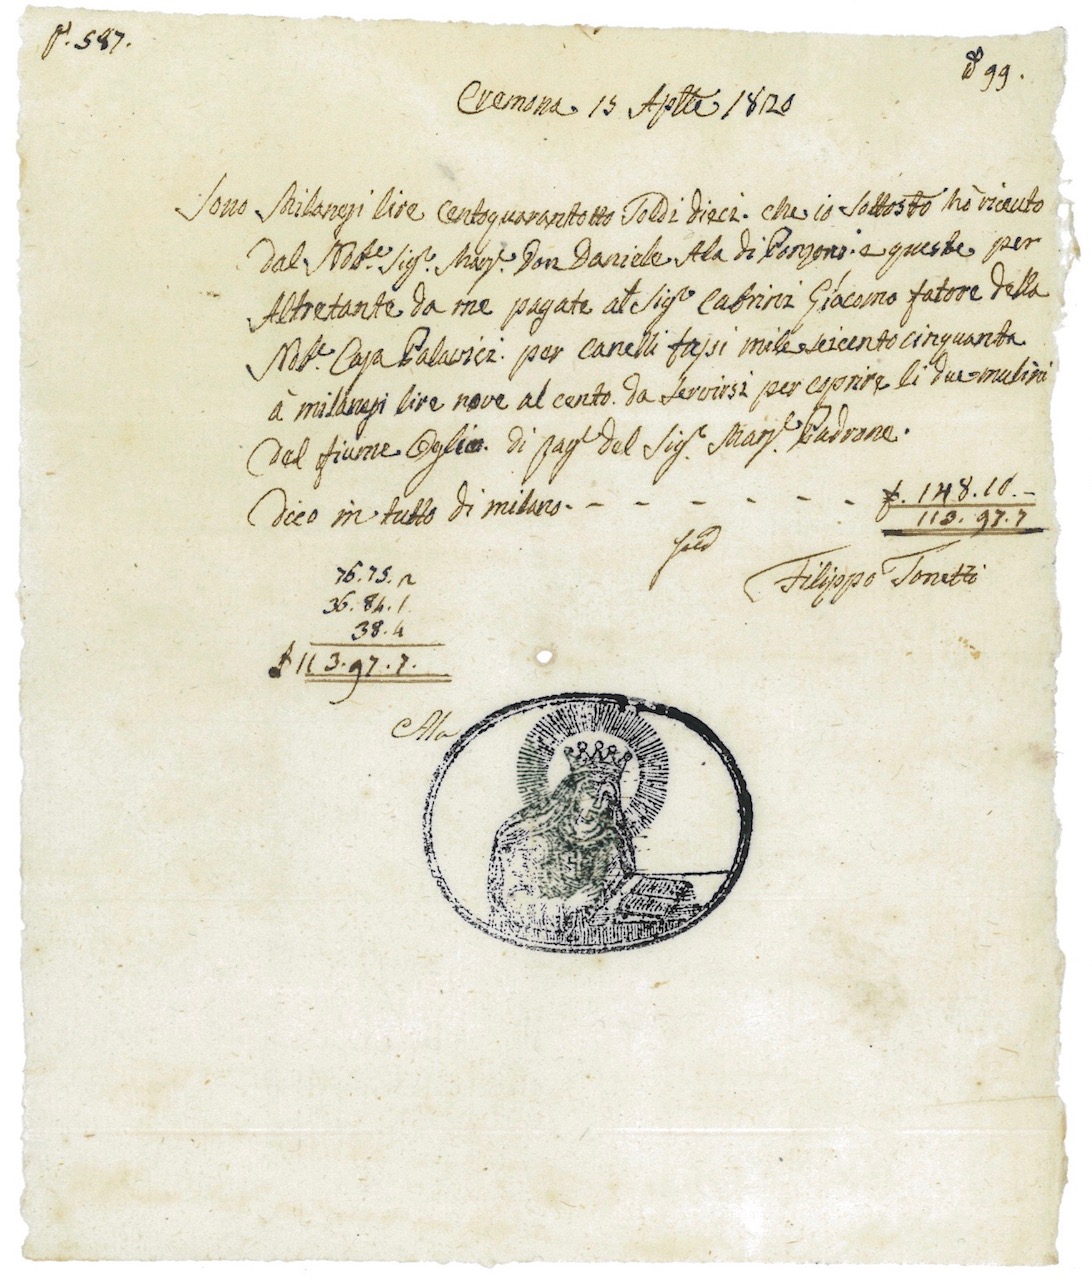 f. 587.
N 99.
Cremona 15 Aplle 1820
Sono Milanesi lire centoquarantotto Soldi dieci. che io Sottostō hò riceuto
Dal Nobe. Sigr. Marsr. Don Daniele Ala di Ponzoni. e queste per
Altretante da me pagate al Sigr. Cabrini Giacomo fatore della
Nobe. Casa Palavici. per canelli fassi mile seicento cinquanta
à milanesi lire nove al cento. da Servirsi per coprire li due mulini
del fiume Oglio. di pagl del Sigr. Marsr. Padrone.
Dico in tutto di milano. - - - - - - - £. 148.10.-
113.97.7
Filippo Tonetti
76.75.2
36.84.1
38.4
£ 113.97.7.
Ala